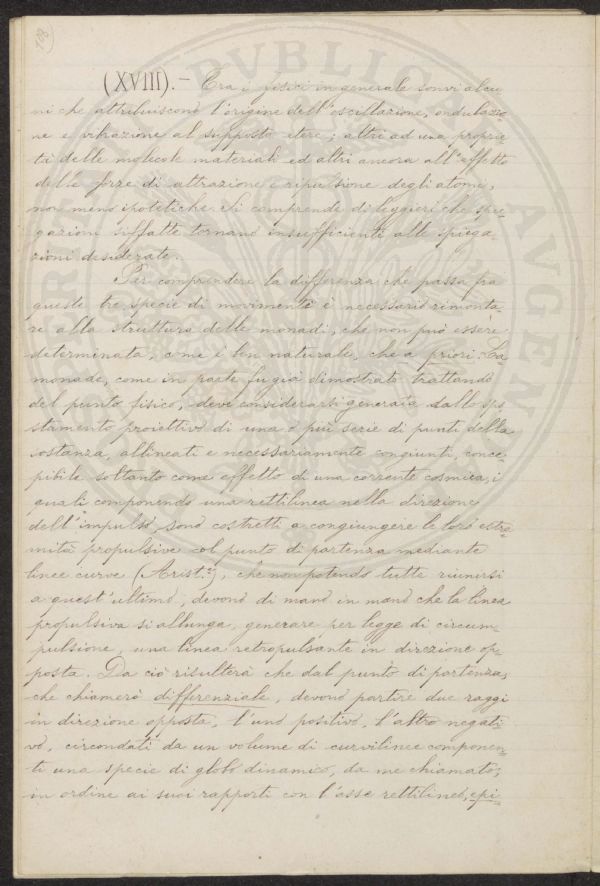 108
(XVIII). – Tra i fisici in generale sonvi alcu-
ni che attribuiscono l'origine dell'oscillazione, ondulazio-
ne e vibrazione al supposto etere; altri ad una proprie-
tà delle molecole materiali ed altri ancora all'effetto
delle forze di attrazione e ripulsione degli atomi,
non meno ipotetiche. Si comprende di leggieri che spie-
gazioni siffatte tornano insufficienti alle spiega-
zioni desiderate.
Per comprendere la differenza che passa fra
queste tre specie di movimenti è necessario rimonta-
re alla struttura delle monadi, che non può essere
determinata, come è ben naturale, che a priori. La
monade, come in parte fu già dimostrato trattando
del punto fisico, deve considerarsi generata dallo spo-
stamento proiettivo di una o più serie di punti della
sostanza, allineati e necessariamente congiunti, conce-
pibile soltanto come effetto di una corrente cosmica, i
quali componendo una rettilinea nella direzione
dell'impulso, sono costretti a congiungere le loro estre-
mità propulsive col punto di partenza mediante
linee curve (Arist.), che non potendo tutte riunirsi
a quest'ultimo, devono di mano in mano che la linea
propulsiva si allunga, generare per legge di circum-
pulsione, una linea retropulsante in direzione op-
posta. Da ciò risulterà che dal punto di partenza,
che chiamerò differenziale, devono partire due raggi
in direzione opposta, l'uno positivo, l'altro negati-
vo, circondati da un volume di curvilinee componen-
ti una specie di globo dinamico, da me chiamato,
in ordine ai suoi rapporti con l'asse rettilineo, epi-